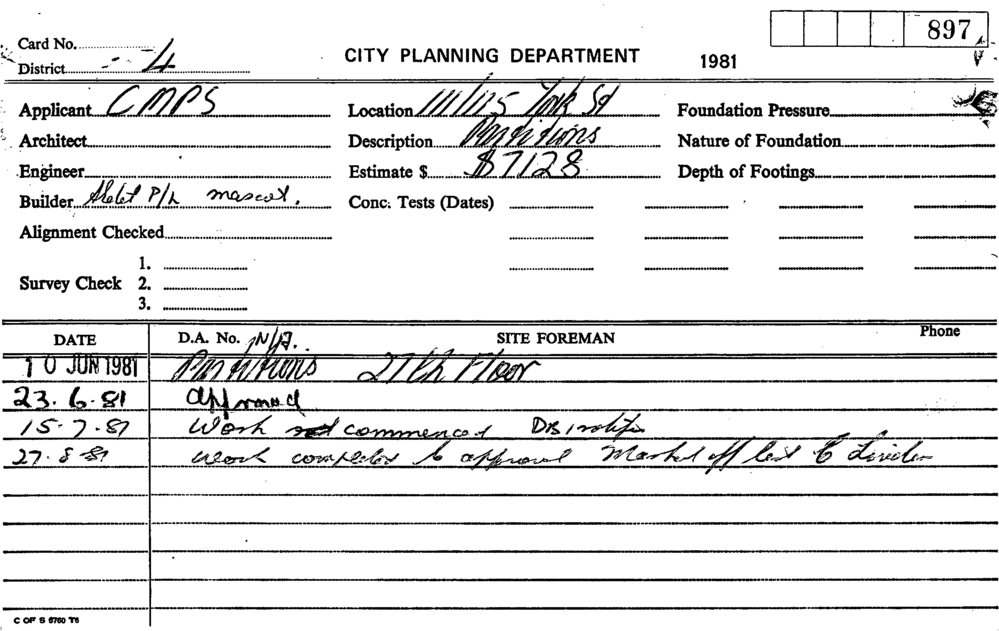 897
Card No.
District 4
CITY PLANNING DEPARTMENT 1981
Applicant CMPS Location 111/115 York St Foundation Pressure
Architect Description Partitions Nature of Foundation
Engineer Estimate $ $7128 Depth of Footings
Builder P/L mascot. Conc. Tests (Dates)
Alignment Checked
1.
Survey Check 2.
3.
DATE D.A. No. N/A. SITE FOREMAN Phone
10 JUN 1981 Partitions 27th Floor
23.6.81 approved
15.7.81 Work not commenced
27.8.81 work completed to approval Marked off
C OF S 6760 T6